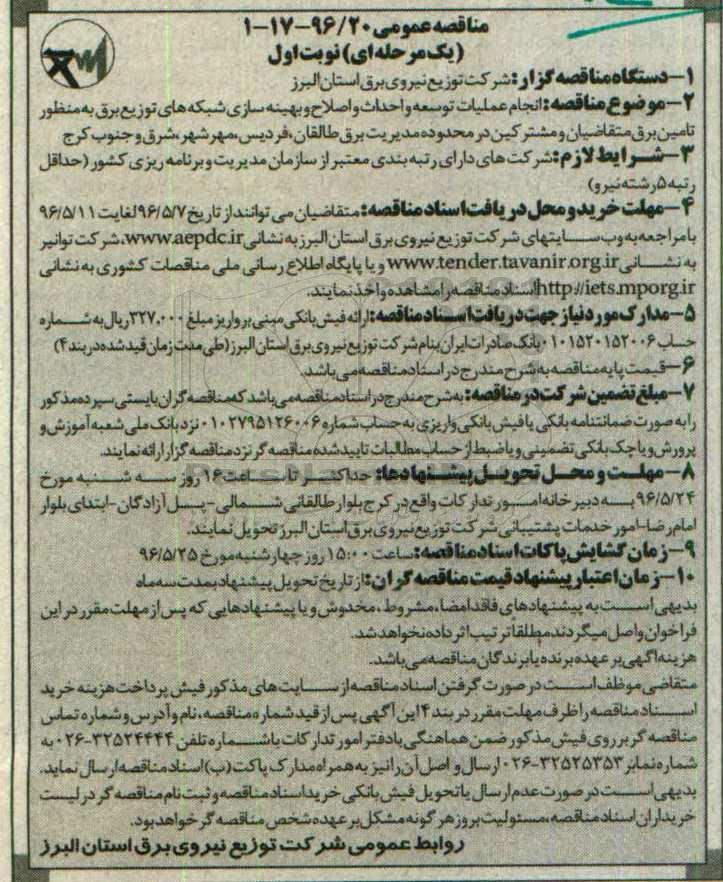 مناقصه عمومی ۹۶/۲۰-۱۷-۱
(یک مرحله ای) نوبت اول
۱-دستگاه مناقصه گزار: شرکت توزیع نیروی برق استان البرز
۲-موضوع مناقصه: انجام عملیات توسعه و احداث و اصلاح و بهینه سازی شبکه های توزیع برق به منظور
تامین برق متقاضیان و مشترکین در محدوده مدیریت برق طالقان، فردیس، مهرشهر، شرق و جنوب کرج
۳-شرایط لازم: شرکت های دارای رتبه بندی معتبر از سازمان مدیریت و برنامه ریزی کشور (حداقل
رتبه ۵ رشته نیرو)
۴-مهلت خرید و محل دریافت اسناد مناقصه: متقاضیان می توانند از تاریخ ۹۶/۵/۷ لغایت ۹۶/۵/۱۱
با مراجعه به وب سایتهای شرکت توزیع نیروی برق استان البرز به نشانی www.aepdc.ir، شرکت توانیر
به نشانی www.tender.tavanir.org.ir و یا پایگاه اطلاع رسانی ملی مناقصات کشوری به نشانی
http://iets.mporg.ir اسناد مناقصه را مشاهده و اخذ نمایند.
۵-مدارک مورد نیاز جهت دریافت اسناد مناقصه: ارائه فیش بانکی مبنی بر واریز مبلغ ۳۲۷,۰۰۰ ریال به شماره
حساب ۰۱۰۱۵۲۰۱۵۲۰۰۶ بانک صادرات ایران بنام شرکت توزیع نیروی برق استان البرز (طی مدت زمان قید شده در بند ۴)
۶-قیمت پایه مناقصه به شرح مندرج در اسناد مناقصه می باشد.
۷-مبلغ تضمین شرکت در مناقصه: به شرح مندرج در اسناد مناقصه می باشد که مناقصه گران بایستی سپرده مذکور
را به صورت ضمانتنامه بانکی یا فیش بانکی واریزی به حساب شماره ۰۱۰۲۷۹۵۱۲۶۰۰۶ نزد بانک ملی شعبه آموزش و
پرورش و یا چک بانکی تضمینی و یا ضبط از حساب مطالبات تایید شده مناقصه گر نزد مناقصه گزار ارائه نمایند.
۸-مهلت و محل تحویل پیشنهادها: حداکثر تا ساعت ۱۶ روز سه شنبه مورخ
۹۶/۵/۲۴ به دبیرخانه امور تدارکات واقع در کرج بلوار طالقانی شمالی-پل آزادگان-ابتدای بلوار
امام رضا-امور خدمات پشتیبانی شرکت توزیع نیروی برق استان البرز تحویل نمایند.
۹-زمان گشایش پاکات اسناد مناقصه: ساعت ۱۵:۰۰ روز چهارشنبه مورخ ۹۶/۵/۲۵
۱۰-زمان اعتبار پیشنهاد قیمت مناقصه گران: از تاریخ تحویل پیشنهاد بمدت سه ماه
بدیهی است به پیشنهادهای فاقد امضا، مشروط، مخدوش و یا پیشنهادهایی که پس از مهلت مقرر در این
فراخوان واصل میگردند مطلقاً ترتیب اثر داده نخواهد شد.
هزینه آگهی بر عهده برنده یا برندگان مناقصه می باشد.
متقاضی موظف است در صورت گرفتن اسناد مناقصه از سایت های مذکور فیش پرداخت هزینه خرید
اسناد مناقصه را ظرف مهلت مقرر در بند ۴ این آگهی پس از قید شماره مناقصه، نام و آدرس و شماره تماس
مناقصه گر بر روی فیش مذکور ضمن هماهنگی با دفتر امور تدارکات با شماره تلفن ۳۲۵۲۴۴۴۴-۰۲۶ به
شماره نمابر ۳۲۵۲۵۳۵۳-۰۲۶ ارسال و اصل آن را نیز به همراه مدارک پاکت (ب) اسناد مناقصه ارسال نماید.
بدیهی است در صورت عدم ارسال یا تحویل فیش بانکی خرید اسناد مناقصه و ثبت نام مناقصه گر در لیست
خریداران اسناد مناقصه، مسئولیت بروز هر گونه مشکل بر عهده شخص مناقصه گر خواهد بود.
روابط عمومی شرکت توزیع نیروی برق استان البرز